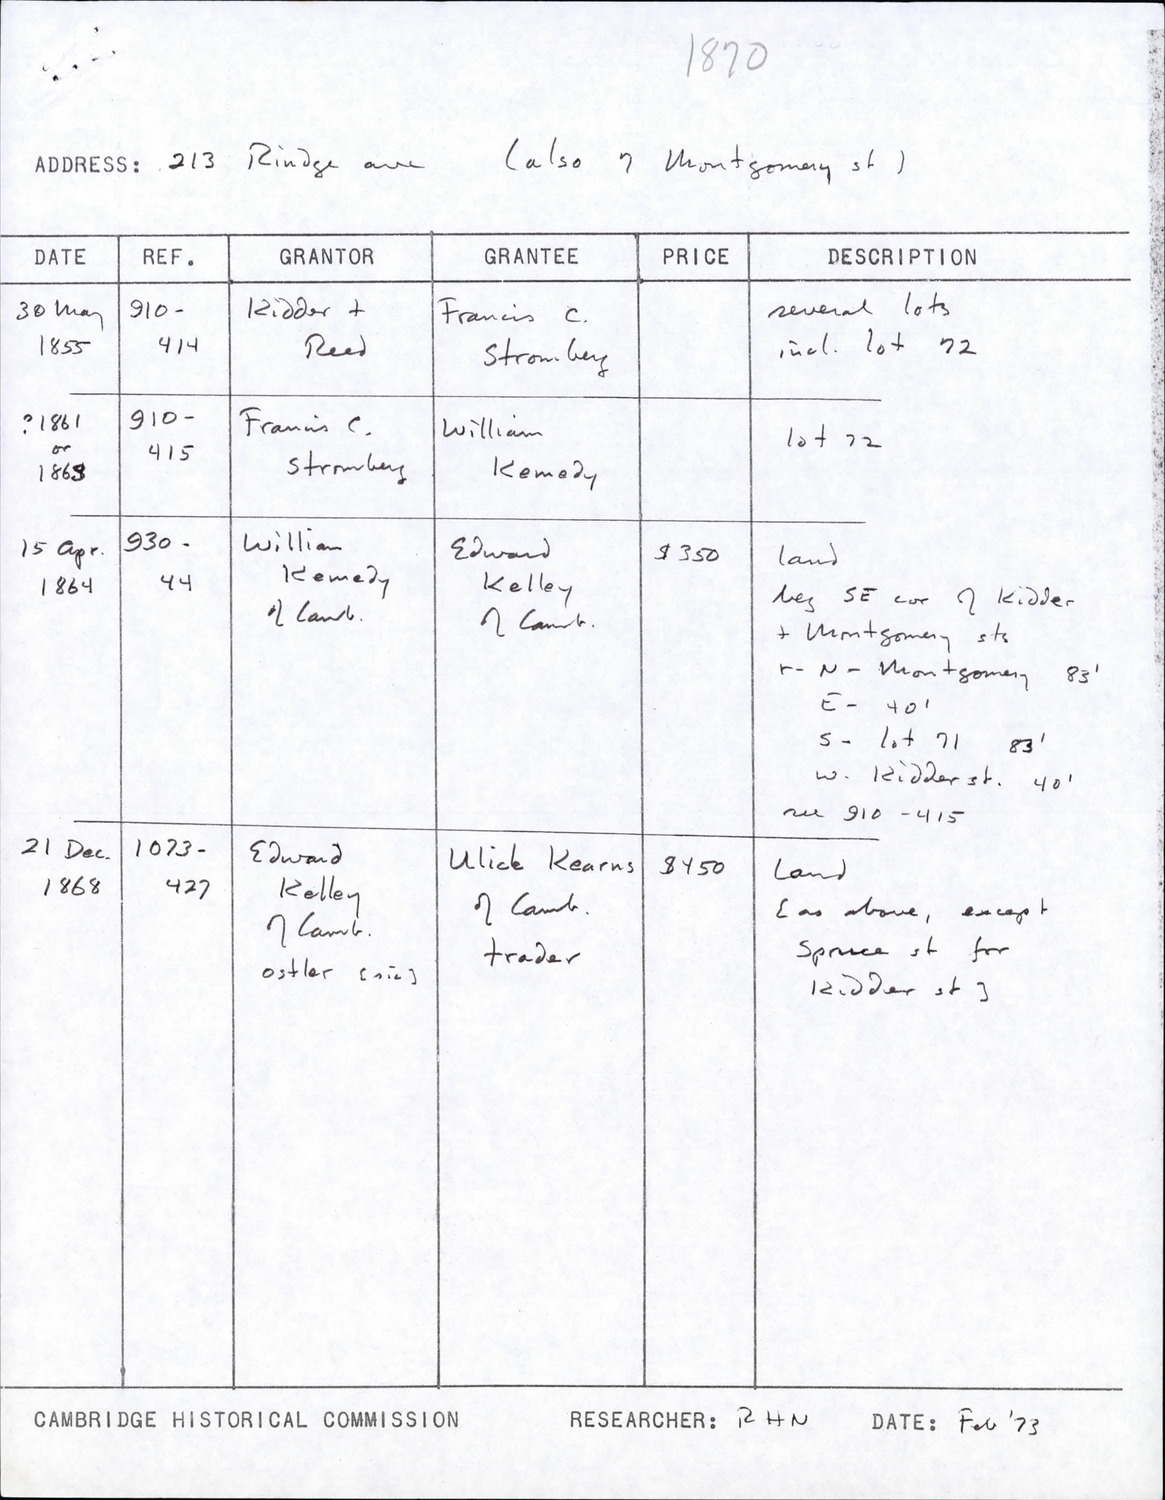 1870
ADDRESS: 213 Rindge ave (also 7 Montgomery st)
DATE REF. GRANTOR GRANTEE PRICE DESCRIPTION
30 May
1855
910-
414
Kidder +
Reed
Francis C.
Stromberg
several lots
incl. lot 72
? 1861
or
1863
910-
415
Francis C.
Stromberg
William
Kemedy
lot 72
15 Apr.
1864
930-
44
William
Kemedy
of Camb.
Edward
Kelley
of Camb.
$350
land
beg SE cor of Kidder
+ Montgomery sts
r- N - Montgomery 83'
E - 40'
S - lot 71 83'
W. Kidder st. 40'
see 910-415
21 Dec.
1868
1073-
427
Edward
Kelley
of Camb.
ostler [sic]
Ulick Kearns
of Camb.
trader
$450
Land
[as above, except
Spruce st for
Kidder st]
CAMBRIDGE HISTORICAL COMMISSION RESEARCHER: RHN DATE: Feb '73